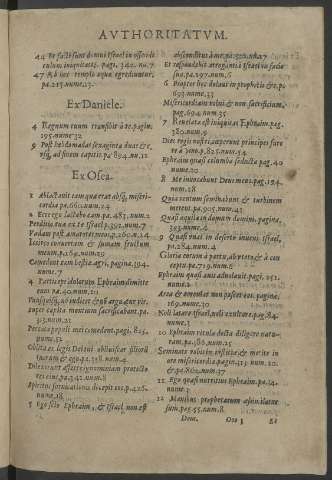 AVTHORITATVM.
44 Et facti sunt domui Israel in offendi
culum iniquitatis. pagi. 340. nu.7
47 Ab hoc templo aqua egrediuntur,
pa.215.nume.13.
Ex Daniele.
4 Regnum tuum transibit à te. pagin.
195.nume.32
9 Post hebdomadas sexaginta duas &c,
vsq; ad finem capitis.pa.894.nu.11
Ex Osea.
2 Ablactauit eam quae erat absq; miseri-
cordia pa.661.num.24
2 Ecce ego lactabo eam. pa.483.num.2
Perditio tua ex te Israel p.392.num.7
Vadam post amatores meos.p.260.n.24
meum p.169.num.29
Comedent eam bestie agri, pagina.394.
nume.7
4 Particeps idolorum Ephraim dimitte
eum pa.40.num.111
per capita mentium sacrificabant.pa.
935.num.21
Peccata populi mei comedent.pagi.825.
nume.51
Oblita es legis Dei tui obliuiscar filiorū
tuorum & ego.p.358.num.4
Dilexerunt afferre ignominiam protecto
res eius.pa.342.num.8
Spiritus fornicationū decepit eos.p.426.
nume.18.
5 Ego scio Ephraim, & Israel non est
absconditus à me.pa.520.nu.27
Et respondebit arrogantia Israel in facie
sua.pa.297.num.6
6 Propter hoc dolaui in prophetis &c.p.
693.nume.33
Misericordiam volui & non sacrificium.
pag.694.num.35
7 Reuelata est iniquitas Ephraim.pag.
380.num.9
Dies regis nostri, coeperunt principes fure
re à vino.p.825.num.34
Ephraim quasi columba seducta pag.40
nume.20
8 Me inuocabunt Deus meus. pag.194.
num.28
Quia ventum seminabunt & turbinem
metent.pa.905.num.41
Quasi aquila in domum domini, pagina,
393.num.4
9 Quasi vuas in deserto inueni Israel,
pa.284.num.4
Gloria eorum à partu, ab vtero, & à con
ceptu.pa.719.num.8
Ephraim quasi auis auolauit.pagi.251.
nume.2
Area & torcular non pascet eos. pagina,
169.num.30
Noli laetare Israel, noli exultare p.pag.84
nume.3
10 Ephraim vitula docta diligere tritu-
ram.pa.486.num.25
Seminate vobis in iustitia, & metite in
ore misericordiae.pagin.413.num.20.
& pa.862.num.37
11 Ego quasi nutritius Ephraim.pa.14.
nume.3
sum.pag.55.num.8
Dom. Ooo 3 Et